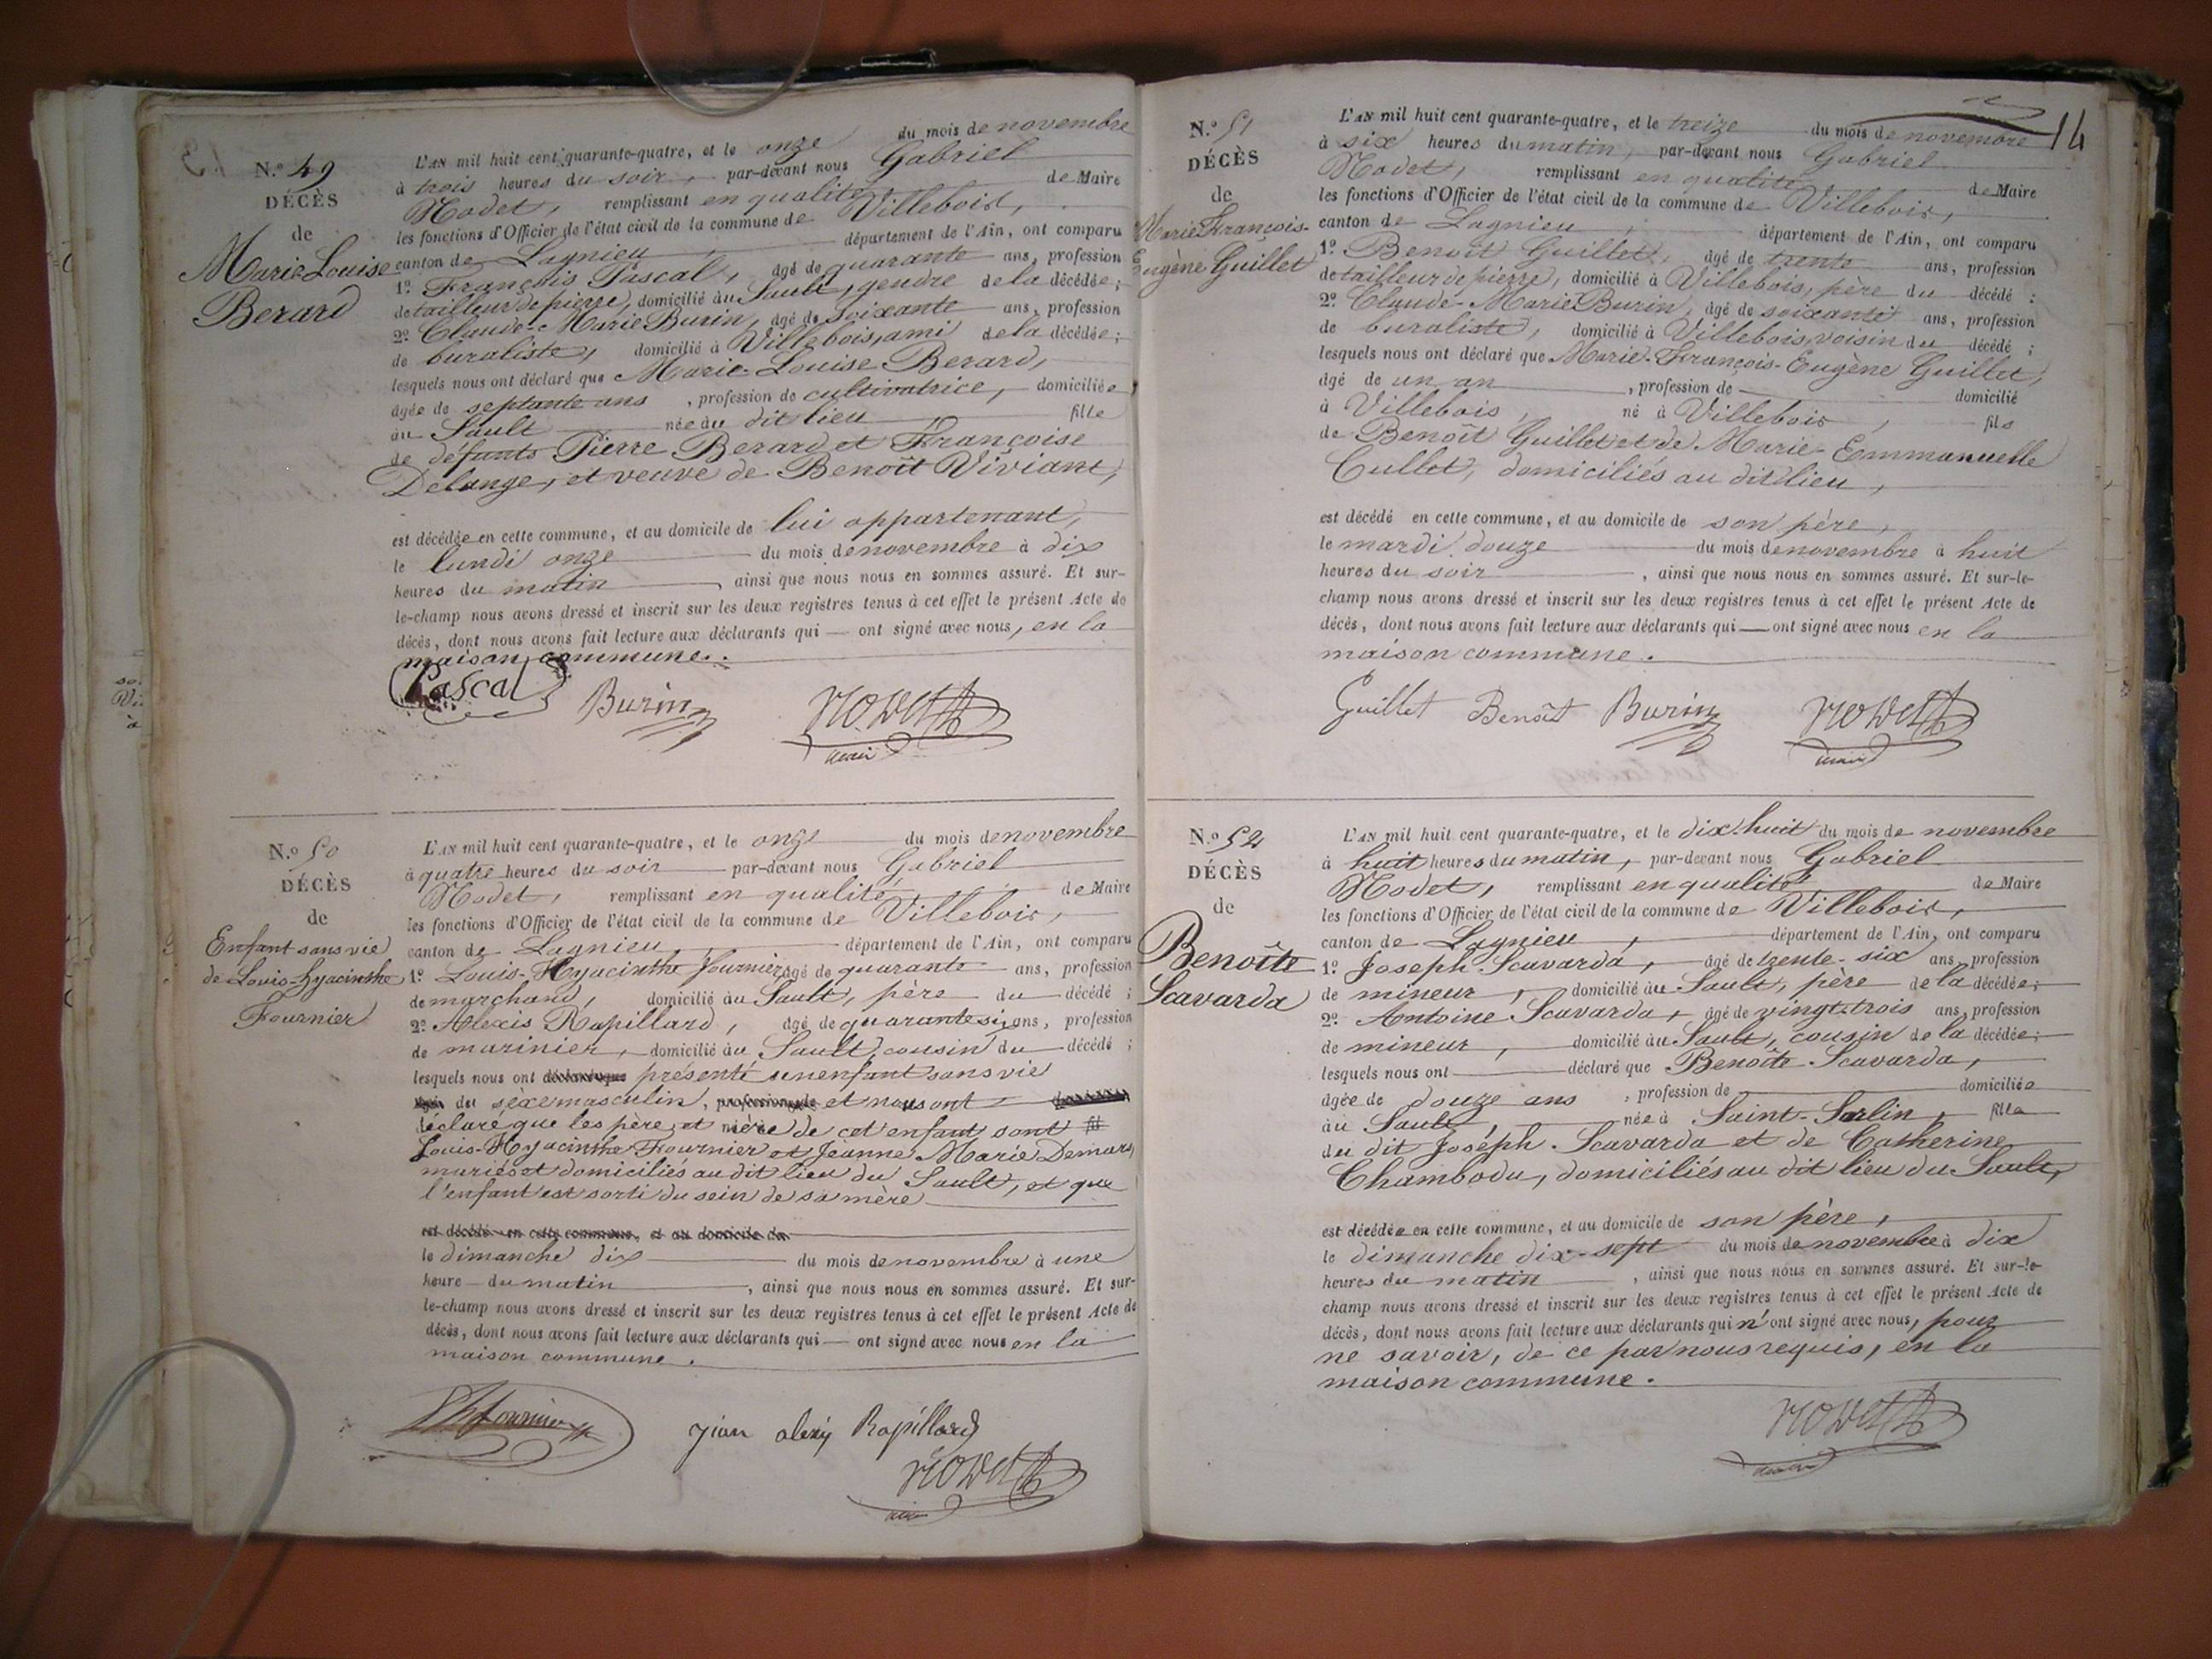 N.° 49
DÉCÈS
de
Marie Louise
Berard
L'AN mil huit cent quarante-quatre, et le onze du mois de novembre
à trois heures du soir, par-devant nous Gabriel
Nodet, remplissant en qualité de Maire
les fonctions d'Officier de l'état civil de la commune de Villebois,
canton de Lagnieu, département de l'Ain, ont comparu
1.° François Pascal, âgé de quarante ans, profession
de tailleur de pierre, domicilié au Sault, gendre de la décédée;
2.° Claude-Marie Burin, âgé de soixante ans, profession
de buraliste, domicilié à Villebois, ami de la décédée;
lesquels nous ont déclaré que Marie-Louise Berard,
âgée de septante ans, profession de cultivatrice, domiciliée
au Sault née au dit lieu, fille
de défunts Pierre Berard et Françoise
Delange, et veuve de Benoît Viviant,
est décédée en cette commune, et au domicile de lui appartenant,
le lundi onze du mois de novembre à dix
heures du matin, ainsi que nous nous en sommes assuré. Et sur-
le-champ nous avons dressé et inscrit sur les deux registres tenus à cet effet le présent Acte de
décès, dont nous avons fait lecture aux déclarants qui — ont signé avec nous, en la
maison commune.
Pascal Burin Nodet
maire
N.° 50
DÉCÈS
de
Enfant sans vie
de Louis-hyacinthe
Fournier
L'AN mil huit cent quarante-quatre, et le onze du mois de novembre
à quatre heures du soir par-devant nous Gabriel
Nodet, remplissant en qualité, de Maire
les fonctions d'Officier de l'état civil de la commune de Villebois,
canton de Lagnieu, département de l'Ain, ont comparu
1.° Louis-Hyacinthe Fournier âgé de quarante ans, profession
de marchand, domicilié au Sault, père du décédé;
2.° Alexis Rapillard, âgé de quarante six ans, profession
de marinier, domicilié au Sault, cousin du décédé;
lesquels nous ont déclaré que présenté un enfant sans vie
du sexe masculin, profession de et nous ont
déclaré que les père et mère de cet enfant sont
Louis-Hyacinthe Fournier et Jeanne Marie Demars,
mariés et domiciliés au dit lieu du Sault, et que
l'enfant est sorti du sein de sa mère
est décédé en cette commune, et au domicile de
le dimanche dix du mois de novembre à une
heure du matin, ainsi que nous nous en sommes assuré. Et sur-
le-champ nous avons dressé et inscrit sur les deux registres tenus à cet effet le présent Acte de
décès, dont nous avons fait lecture aux déclarants qui — ont signé avec nous en la
maison commune.
Fournier jian alexy Rapillard
Nodet
maire
14
N.° 51
DÉCÈS
de
Marie François-
Eugène Guillet
L'AN mil huit cent quarante-quatre, et le treize du mois de novembre
à six heures du matin, par-devant nous Gabriel
Nodet, remplissant en qualité de Maire
les fonctions d'Officier de l'état civil de la commune de Villebois,
canton de Lagnieu, département de l'Ain, ont comparu
1.° Benoît Guillet, âgé de trente ans, profession
de tailleur de pierre, domicilié à Villebois, père du décédé;
2.° Claude-Marie Burin, âgé de soixante ans, profession
de buraliste, domicilié à Villebois, voisin du décédé;
lesquels nous ont déclaré que Marie-François-Eugène Guillet,
âgé de un an, profession de domicilié
à Villebois, né à Villebois, fils
de Benoît Guillet et de Marie-Emmanuelle
Cullet, domiciliés au dit lieu,
est décédé en cette commune, et au domicile de son père,
le mardi douze du mois de novembre à huit
heures du soir, ainsi que nous nous en sommes assuré. Et sur-le-
champ nous avons dressé et inscrit sur les deux registres tenus à cet effet le présent Acte de
décès, dont nous avons fait lecture aux déclarants qui — ont signé avec nous en la
maison commune.
Guillet Benoît Burin Nodet
maire
N.° 52
DÉCÈS
de
Benoîte
Scavarda
L'AN mil huit cent quarante-quatre, et le dix-huit du mois de novembre
à huit heures du matin, par-devant nous Gabriel
Nodet, remplissant en qualité de Maire
les fonctions d'Officier de l'état civil de la commune de Villebois,
canton de Lagnieu, département de l'Ain, ont comparu
1.° Joseph Scavarda, âgé de trente-six ans, profession
de mineur, domicilié au Sault, père de la décédée;
2.° Antoine Scavarda, âgé de vingt-trois ans, profession
de mineur, domicilié au Sault, cousin de la décédée;
lesquels nous ont déclaré que Benoîte Scavarda,
âgée de douze ans, profession de domiciliée
au Sault, née à Saint-Sorlin, fille
du dit Joseph Scavarda et de Catherine
Chambodu, domiciliés au dit lieu du Sault,
est décédée en cette commune, et au domicile de son père,
le dimanche dix-sept du mois de novembre à dix
heures du matin, ainsi que nous nous en sommes assuré. Et sur-le-
champ nous avons dressé et inscrit sur les deux registres tenus à cet effet le présent Acte de
décès, dont nous avons fait lecture aux déclarants qui n'ont signé avec nous, pour
ne savoir, de ce par nous requis, en la
maison commune.
Nodet
maire